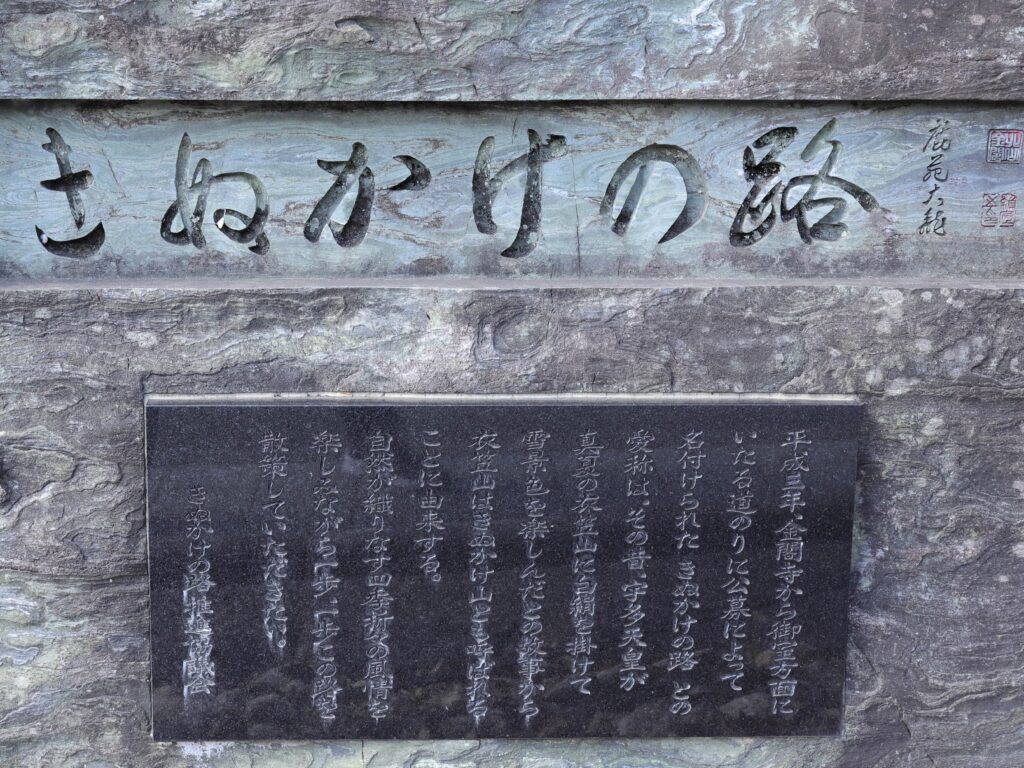 きぬかけの路
鹿苑大龍
平成三年、金閣寺から御室方面に
いたる道のりに、公募によって
名付けられた きぬかけの路 との
愛称は、その昔、宇多天皇が
真夏の衣笠山に白絹を掛けて
雪景色を楽しんだとの故事から
衣笠山はきぬかけ山とも呼ばれる
ことに由来する。
自然が織りなす四季折々の風情を
楽しみながら一歩一歩この路を
散策していただきたい。
きぬかけの路推進協議会